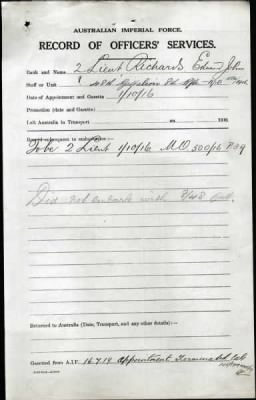 AUSTRALIAN IMPERIAL FORCE.
RECORD OF OFFICERS' SERVICES.
Rank and Name 2 Lieut Richards Edward John
Staff or Unit 48th
Date of Appointment and Gazette 1/10/16
Promotion (date and Gazette)
Left Australia in Transport on 191
Record subsequent to embarkation:—
To be 2 Lieut 1/10/16 M.O. 500/16
Did not embark with 8/48
Returned to Australia (Date, Transport, and any other details):—
Gazetted from A.I.F. 16.7.17 appointment terminated